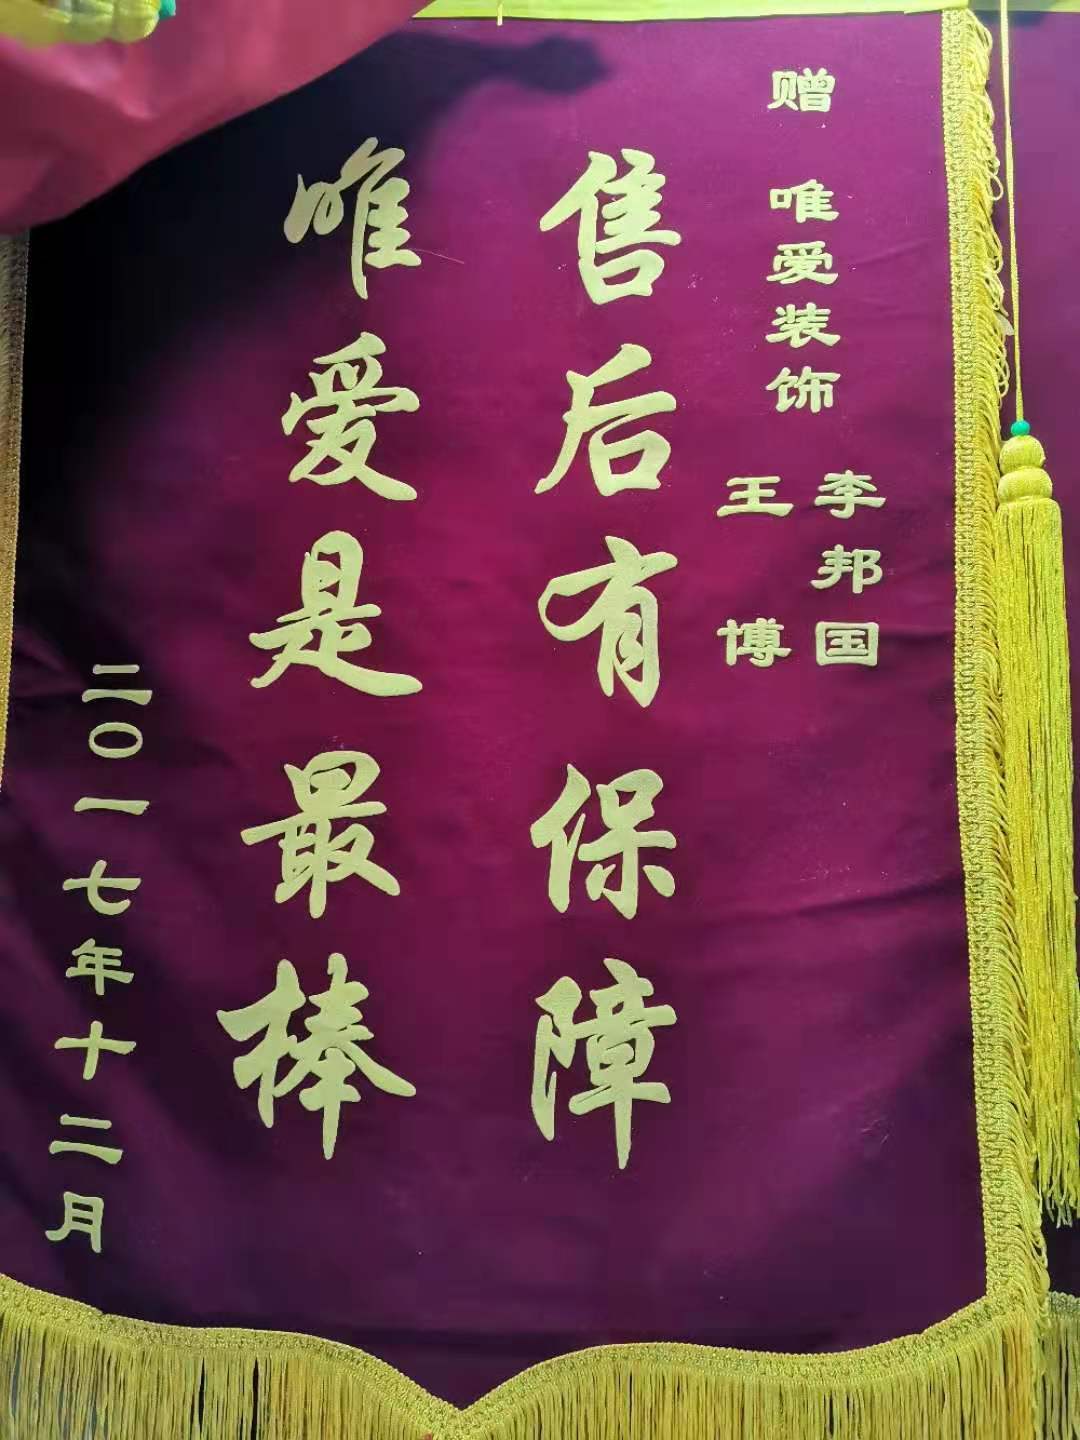 赠 唯爱装饰 李邦国
王博
售后有保障
唯爱是最棒
二〇一七年十二月